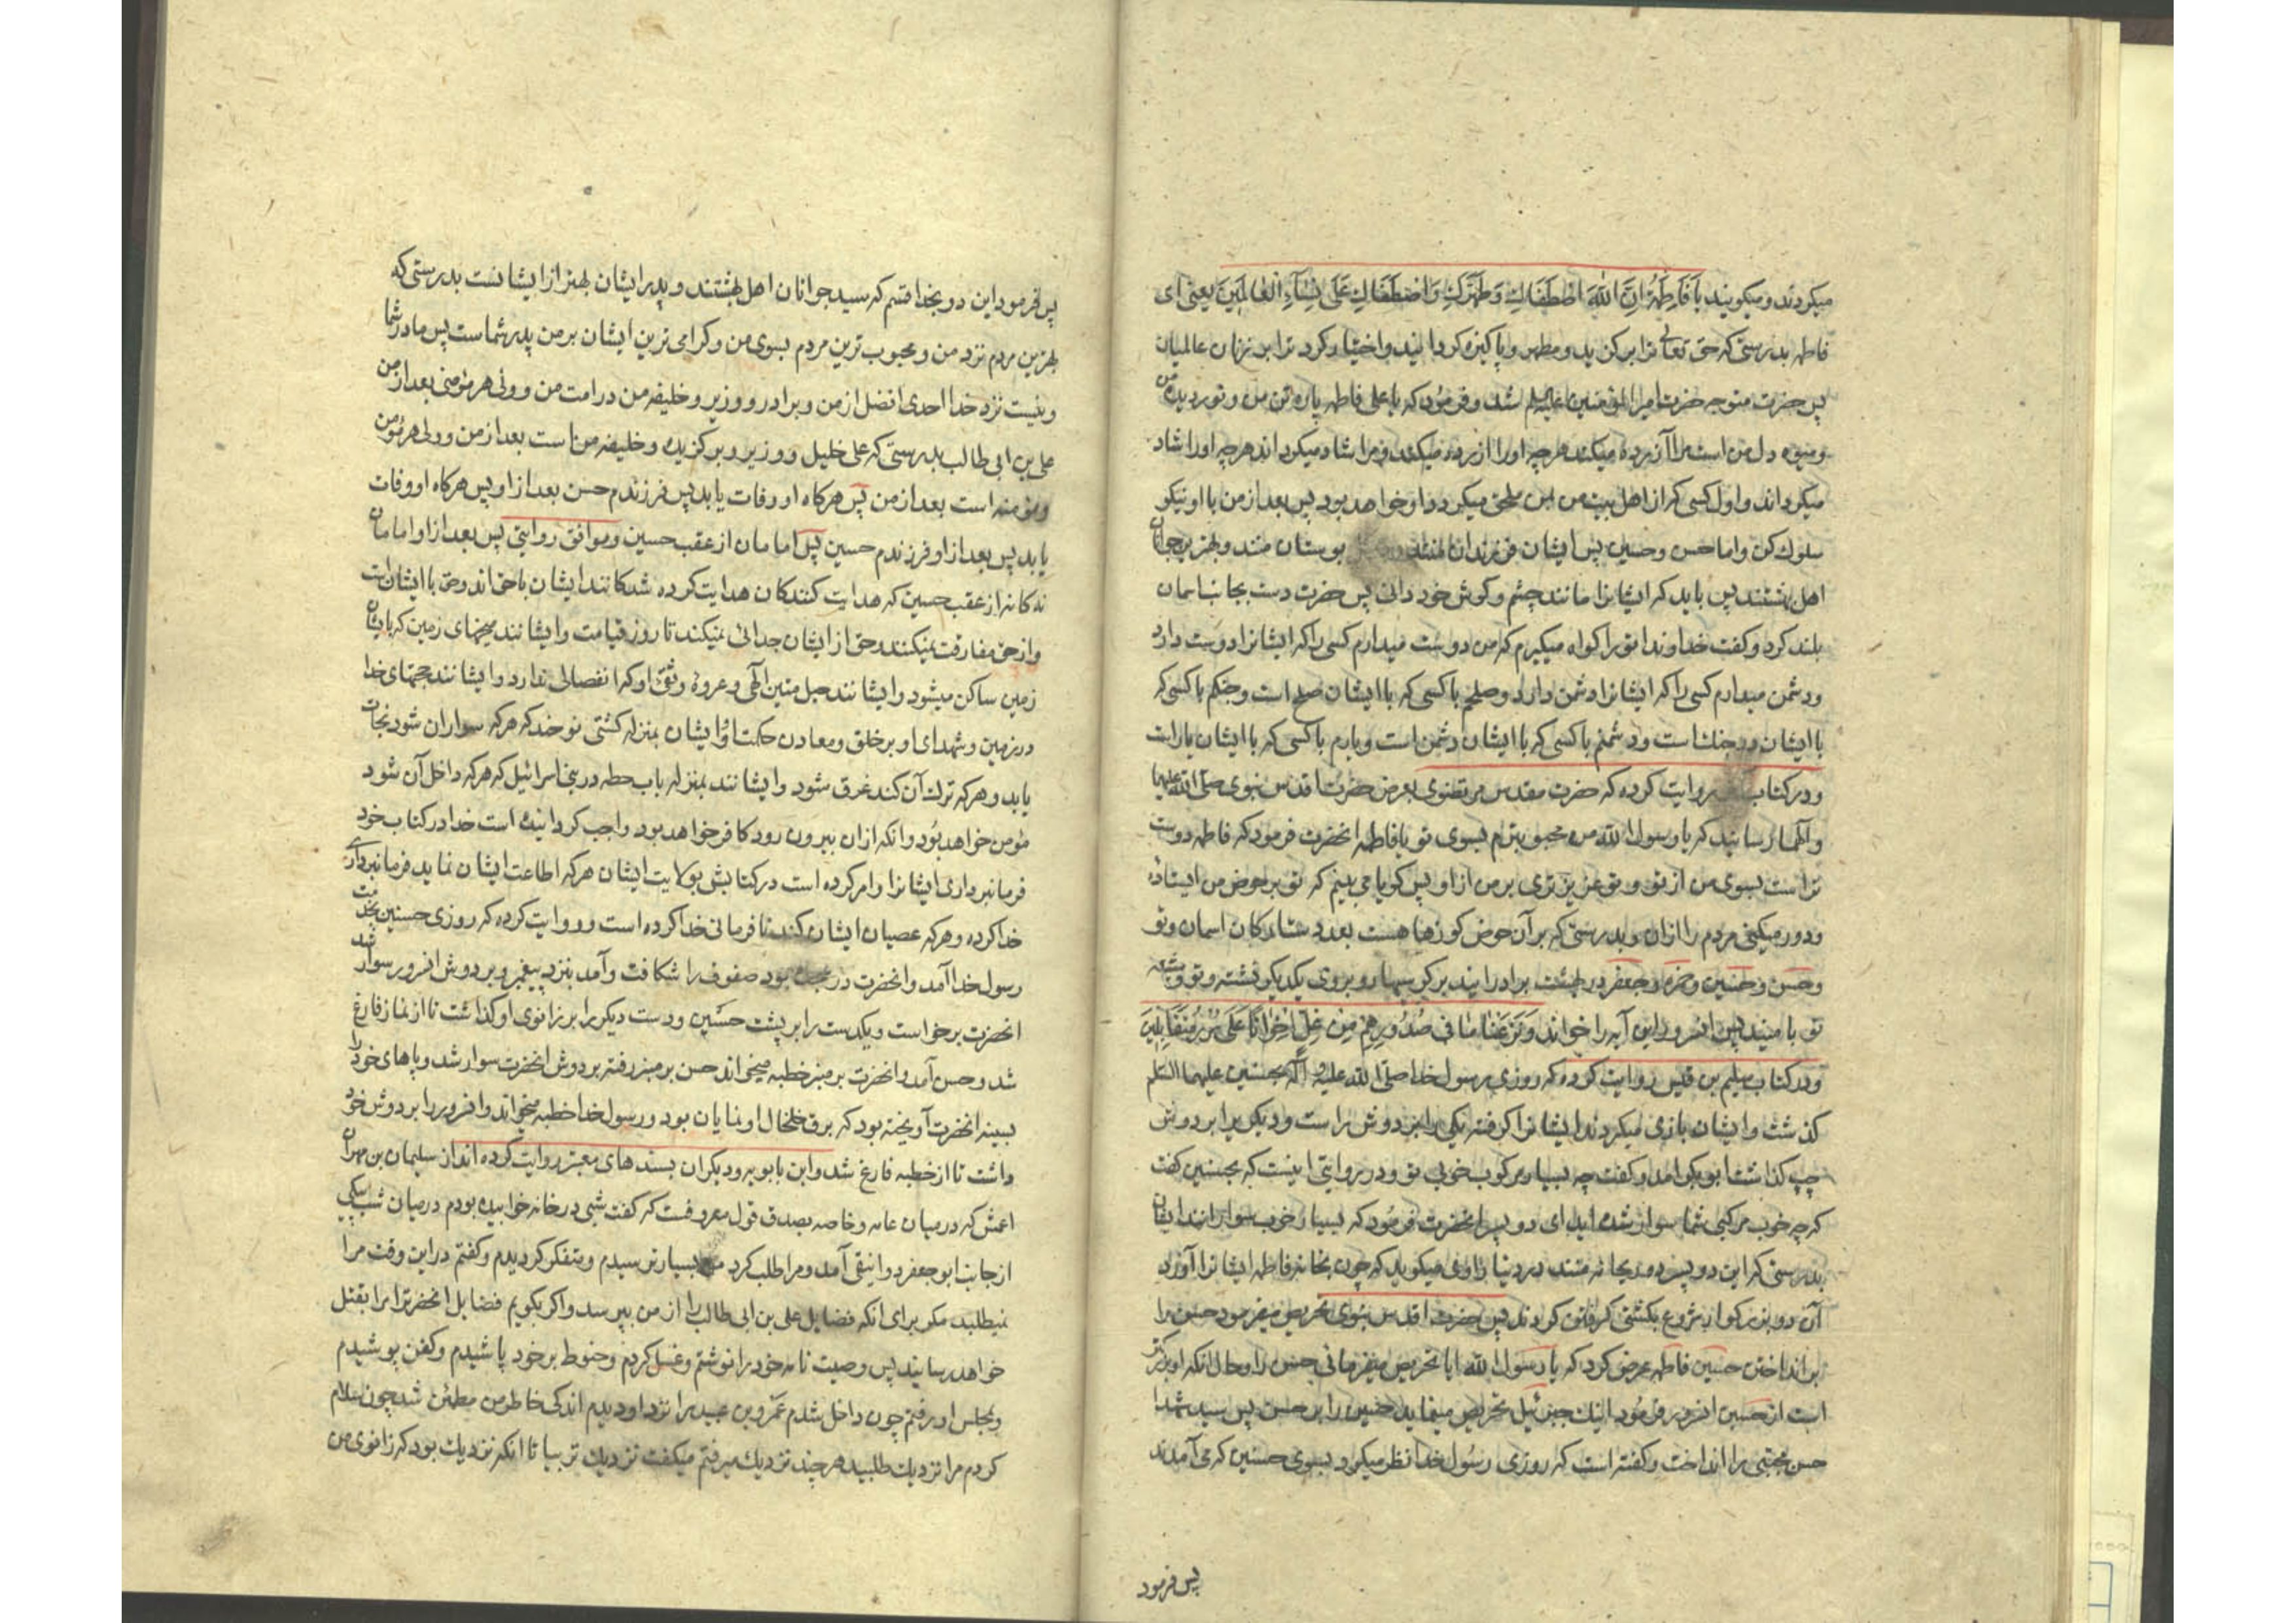 میکردند و میکویند یا فَاطِمَهُ اِنَّ اللّٰهَ اصْطَفَاكِ وَطَهَّرَكِ وَاصْطَفَاكِ عَلَی نِسَآءِ الْعَالَمِینَ یعنی ای
فاطمه بدرستی که حق تعالی ترا برکزید و مطهر و پاکیزه کردانید و اختیار کرد ترا بر زنان عالمیان
پس حضرت متوجه حضرت امیرالمؤمنین علیه السلم شد و فرمود که یا علی فاطمه پاره تن من و نور دیده من
و میوه دل من است مرا آزرده میکند هرچه او را آزرده میکند و مرا شاد میکرداند هرچه او را شاد
میکرداند و اول کسی که از اهل بیت من بمن ملحق میکردد او خواهد بود پس بعد از من با او نیکو
سلوك کن و اما حسن و حسین پس ایشان فرزندان منند بوستان منند و بهترین جوانان
اهل بهشتند پس باید که ایشانرا مانند چشم و کوش خود دانی پس حضرت دست بجانب اسمان
بلند کرد و کفت خداوندا تو را کواه میکیرم که من دوست میدارم کسی را که ایشانرا دوست دارد
و دشمن میدارم کسی را که ایشانرا دشمن دارد و صلحم با کسی که با ایشان صلح است و جنکم با کسی که
با ایشان در جنك است و دشمنم با کسی که با ایشان دشمن است و یارم با کسی که با ایشان یار است
و در کتاب روایت کرده که حضرت مقدس مرتضوی بعرض حضرت اقدس نبوی صلی الله علیهما
و آلهما رسانید که یا رسول الله من محبوبترم بسوی تو یا فاطمه انحضرت فرمود که فاطمه دوست
تر است بسوی من از تو و تو عزیزتری بر من از او پس کویا می بینم که تو بر حوض من ایستاده
و دور میکنی مردم را ازان و بدرستی که بر آن حوض کوزها هست بعدد ستارکان اسمان و تو
و حسن و حسین و حمزه و جعفر در بهشت برادرانید بر کرسیها رو بروی یکدیکر نشسته و تو و شیعه
تو با منید پس انسرور این آیه را خواند وَنَزَعْنَا مَا فِی صُدُورِهِمْ مِنْ غِلٍّ اِخْوَانًا عَلَی سُرُرٍ مُتَقَابِلِینَ
و در کتاب سلیم بن قیس روایت کرده که روزی رسول خدا صلی الله علیه و آله بحسنین علیهما السلم
کذشت و ایشان بازی میکردند ایشانرا کرفته یکی را بر دوش راست و دیکری را بر دوش
چپ کذاشت ابوبکر امد و کفت چه بسیار مرکوب خوبی تو و در روایتی اینست که بحسنین کفت
که چه خوب مرکبی شما سوار شده اید ای دو پسر انحضرت فرمود که بسیار خوب سوارانند ایشان
بدرستی که این دو پسر دو ریحانه منند در دنیا راوی میکوید که چون بخانه فاطمه ایشانرا آورد
آن دو بزرکوار شروع بکشتی کرفتن کردند پس حضرت اقدس نبوی تحریص میفرمود حسن را
بر انداختن حسین فاطمه عرض کرد که یا رسول الله ایا تحریص میفرمائی حسن را و حال انکه او بزرکتر
است از حسین انسرور فرمود اینك جبرئیل تحریص مینماید حسین را بر حسن پس سید شهدا
حسن مجتبی را انداخت و کفته است که روزی رسول خدا نظر میکرد بسوی حسنین که می آمدند
پس فرمود
پس فرمود این دو بخدا قسم که سید جوانان اهل بهشتند و پدر ایشان بهتر از ایشانست بدرستی که
بهترین مردم نزد من و محبوب ترین مردم بسوی من و کرامی ترین ایشان بر من پدر شماست پس مادر شما
و نیست نزد خدا احدی افضل از من و برادر و وزیر و خلیفه من در امت من و ولی هر مؤمنی بعد از من
علی بن ابی طالب بدرستی که علی خلیل و وزیر و برکزیده و خلیفه من است بعد از من و ولی هر مؤمن
و مؤمنه است بعد از من پس هرکاه او وفات یابد پس فرزندم حسن بعد از او پس هرکاه او وفات
یابد پس بعد از او فرزندم حسین پس امامان از عقب حسین و موافق روایتی پس بعد از او امامان
نه کانه از عقب حسین که هدایت کنندکان هدایت کرده شدکانند ایشان با حق اند و حق با ایشان است
و از حق مفارقت نمیکنند و حق از ایشان جدائی نمیکند تا روز قیامت و ایشانند میخهای زمین که بایشان
زمین ساکن میشود و ایشانند حبل متین الهی و عروة وثقی او که انفصالی ندارد و ایشانند حجتهای خدا
در زمین و شهدای او بر خلق و معادن حکمت او و ایشان بمنزله کشتی نوحند که هرکه سوار ان شود نجات
یابد و هرکه ترك آن کند غرق شود و ایشانند بمنزله باب حطه در بنی اسرائیل که هرکه داخل آن شود
مؤمن خواهد بود و انکه ازان بیرون رود کافر خواهد بود واجب کردانیده است خدا در کتاب خود
فرمانبرداری ایشانرا و امر کرده است در کتابش بولایت ایشان هرکه اطاعت ایشان نماید فرمانبرداری
خدا کرده و هرکه عصیان ایشان کند نافرمانی خدا کرده است و روایت کرده که روزی حسنین بخدمت
رسول خدا آمد و انحضرت در بود صفوف را شکافت و آمد بنزد پیغمبر و بر دوش انسرور سوار شد
انحضرت برخواست و یکدست را بر پشت حسین و دست دیکر را بر زانوی او کذاشت تا از نماز فارغ
شد و حسن آمد و انحضرت بر منبر خطبه میخواند حسن بر منبر رفته بر دوش انحضرت سوار شد و پاهای خود را
بسینه انحضرت آویخته بود که برق خلخال او نمایان بود و رسول خدا خطبه میخواند و انسرور را بر دوش خود
داشت تا از خطبه فارغ شد و ابن بابویه و دیکران بسندهای معتبر روایت کرده اند از سلیمان بن مهران
اعمش که در میان عامه و خاصه بصدق قول معروفست که کفت شبی در خانه خوابیده بودم در میان شب پیکی
از جانب ابو جعفر دوانیقی آمد و مرا طلب کرد بسیار ترسیدم و متفکر کردیدم و کفتم در این وقت مرا
نمیطلبد مکر برای انکه فضایل علی بن ابی طالب را از من بپرسد و اکر بکویم فضایل انحضرترا مرا بقتل
خواهد رسانید پس وصیت نامه خود را نوشتم و غسل کردم و حنوط بر خود پاشیدم و کفن پوشیدم
و بمجلس او رفتم چون داخل شدم عمرو بن عبید را نزد او دیدم اندکی خاطر من مطمئن شد چون سلام
کردم مرا نزدیك طلبید هر چند نزدیك میرفتم میکفت نزدیك تر بیا تا انکه نزدیك بود که زانوی من